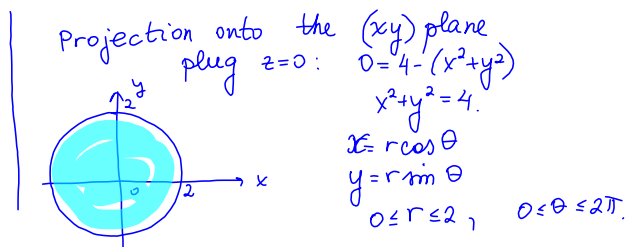 Projection onto the (xy) plane
plug z=0: 0=4-(x²+y²)
x²+y²=4.
x=r cos θ
y=r sin θ
0≤r≤2, 0≤θ≤2π.
y
2
0
2
x